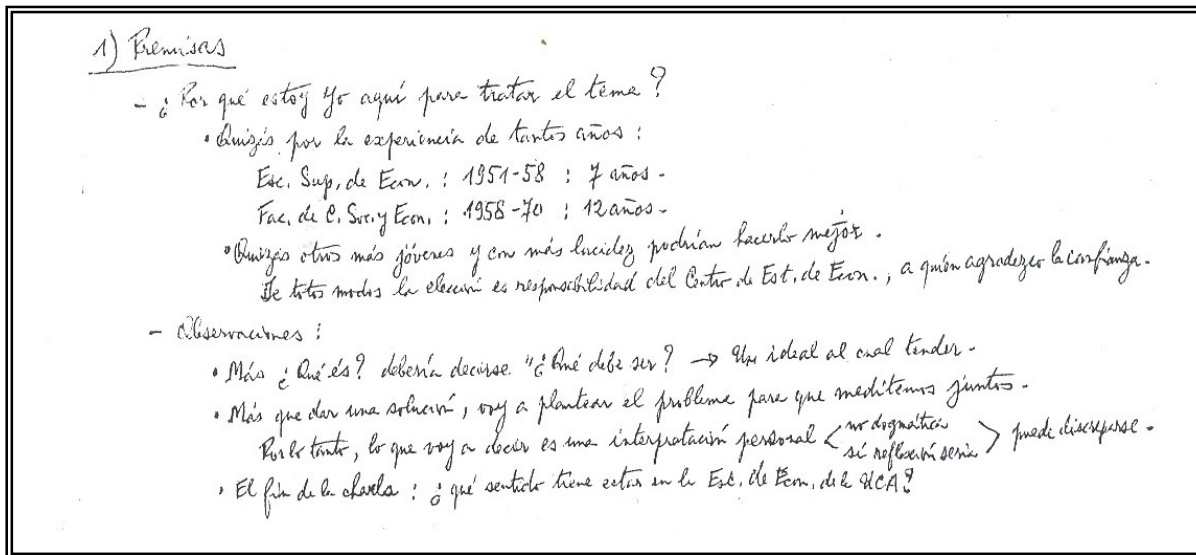 1) Premisas
- ¿Por qué estoy yo aquí para tratar el tema?
• Quizás por la experiencia de tantos años:
Esc. Sup. de Econ. : 1951-58 : 7 años -
Fac. de C. Soc. y Econ. : 1958-70 : 12 años -
• Quizás otros más jóvenes y con más lucidez podrían hacerlo mejor.
De totos modos la elección es responsabilidad del Centro de Est. de Econ., a quién agradezco la confianza.
- Observaciones:
• Más ¿Qué és? debería decirse "¿Qué debe ser? → Un ideal al cual tender -
• Más que dar una solución, voy a plantear el problema para que meditemos juntos -
Por lo tanto, lo que voy a decir es una interpretación personal < no dogmática
sí reflexión seria > puede discreparse -
• El fin de la charla : ¿qué sentido tiene estar en la Esc. de Econ. de la UCA?